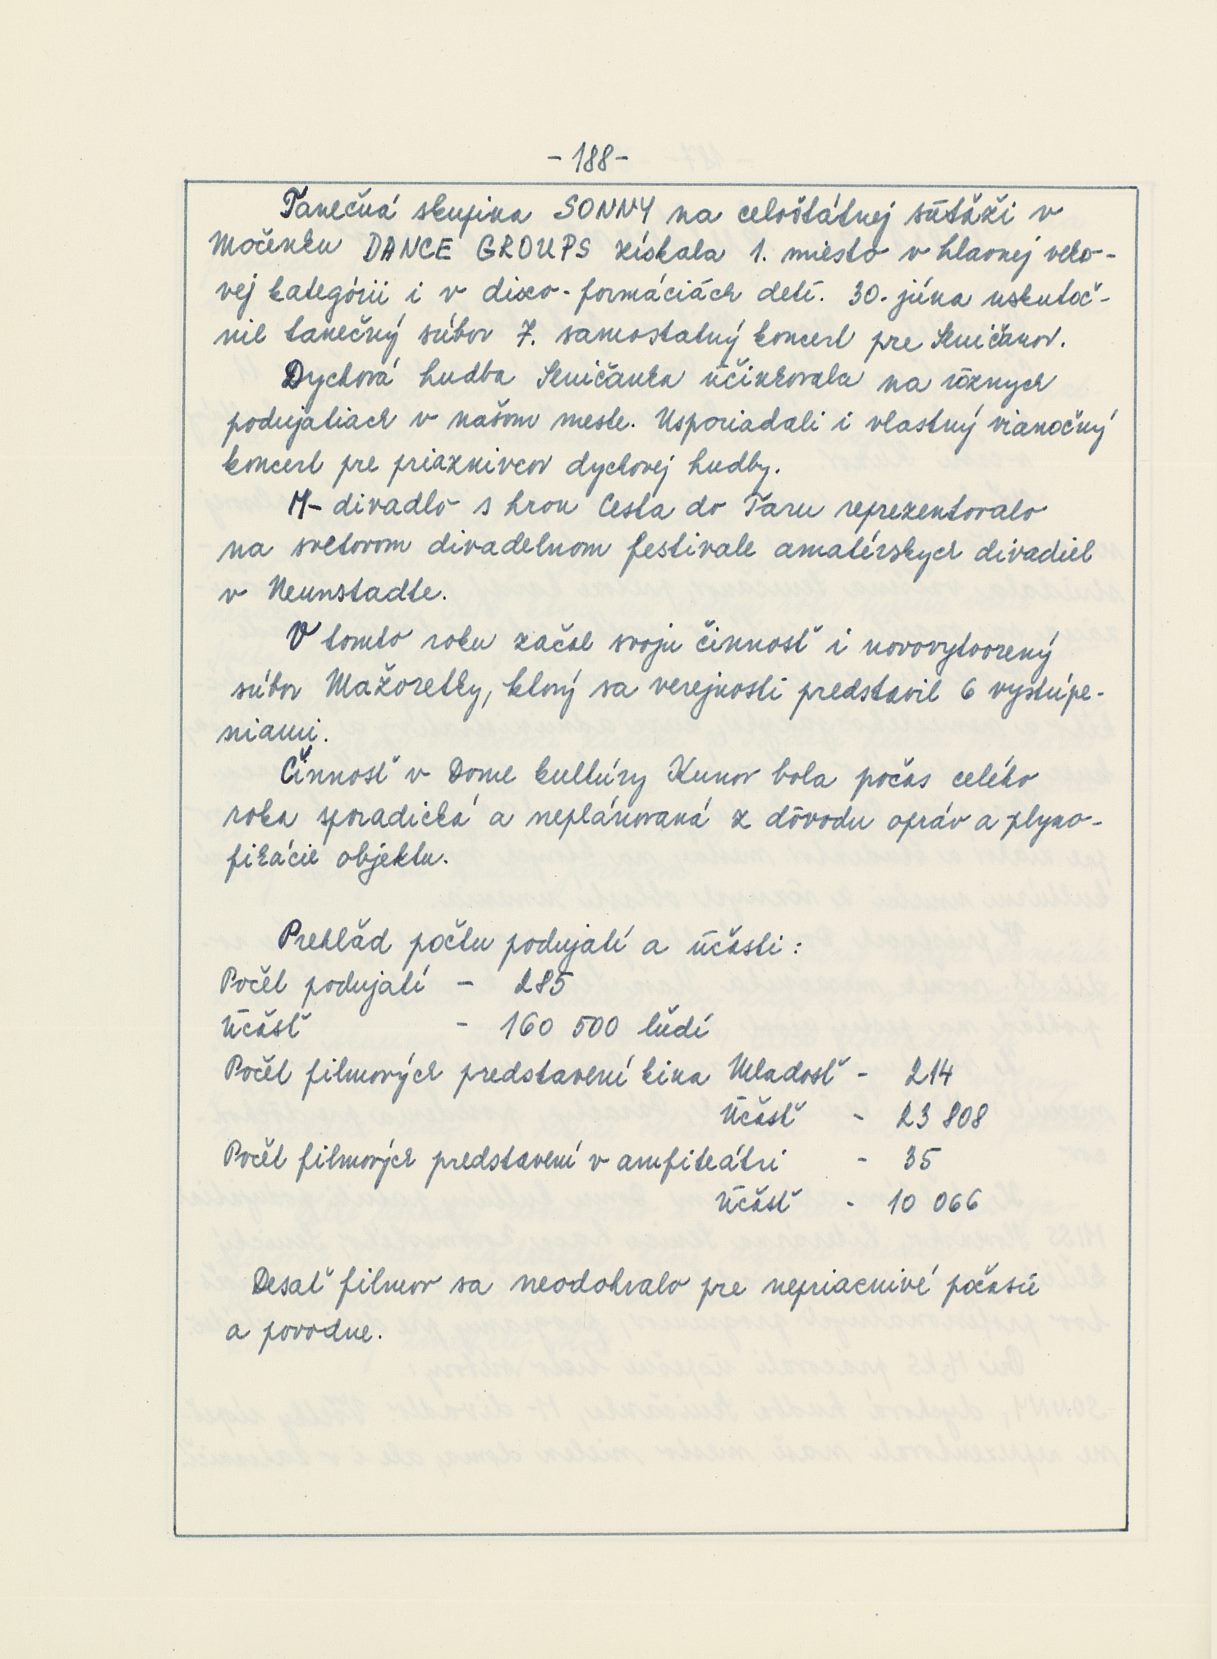 - 188 -
Tanečná skupina SONNY na celoštátnej súťaži v
Močenku DANCE GROUPS získala 1. miesto v hlavnej veko-
vej kategórii i v disco-formáciách detí. 30. júna uskutoč-
nil tanečný súbor 7. samostatný koncert pre Seničanov.
Dychová hudba Seničanka účinkovala na rôznych
podujatiach v našom meste. Usporiadali i vlastný vianočný
koncert pre priaznivcov dychovej hudby.
M- divadlo s hrou Cesta do Taru reprezentovalo
na svetovom divadelnom festivale amatérskych divadiel
v Neunstadte.
V tomto roku začal svoju činnosť i novovytvorený
súbor Mažoretky, ktorý sa verejnosti predstavil 6 vystúpe-
niami.
Činnosť v Dome kultúry Kunov bola počas celého
roka sporadická a neplánovaná z dôvodu opráv a plyno-
fikácie objektu.
Prehľad počtu podujatí a účasti:
Počet podujatí - 285
Účasť - 160 500 ľudí
Počet filmových predstavení kina Mladosť - 214
Účasť - 23 808
Počet filmových predstavení v amfiteátri - 35
Účasť - 10 066
Desať filmov sa neodohralo pre nepriaznivé počasie
a povodne.